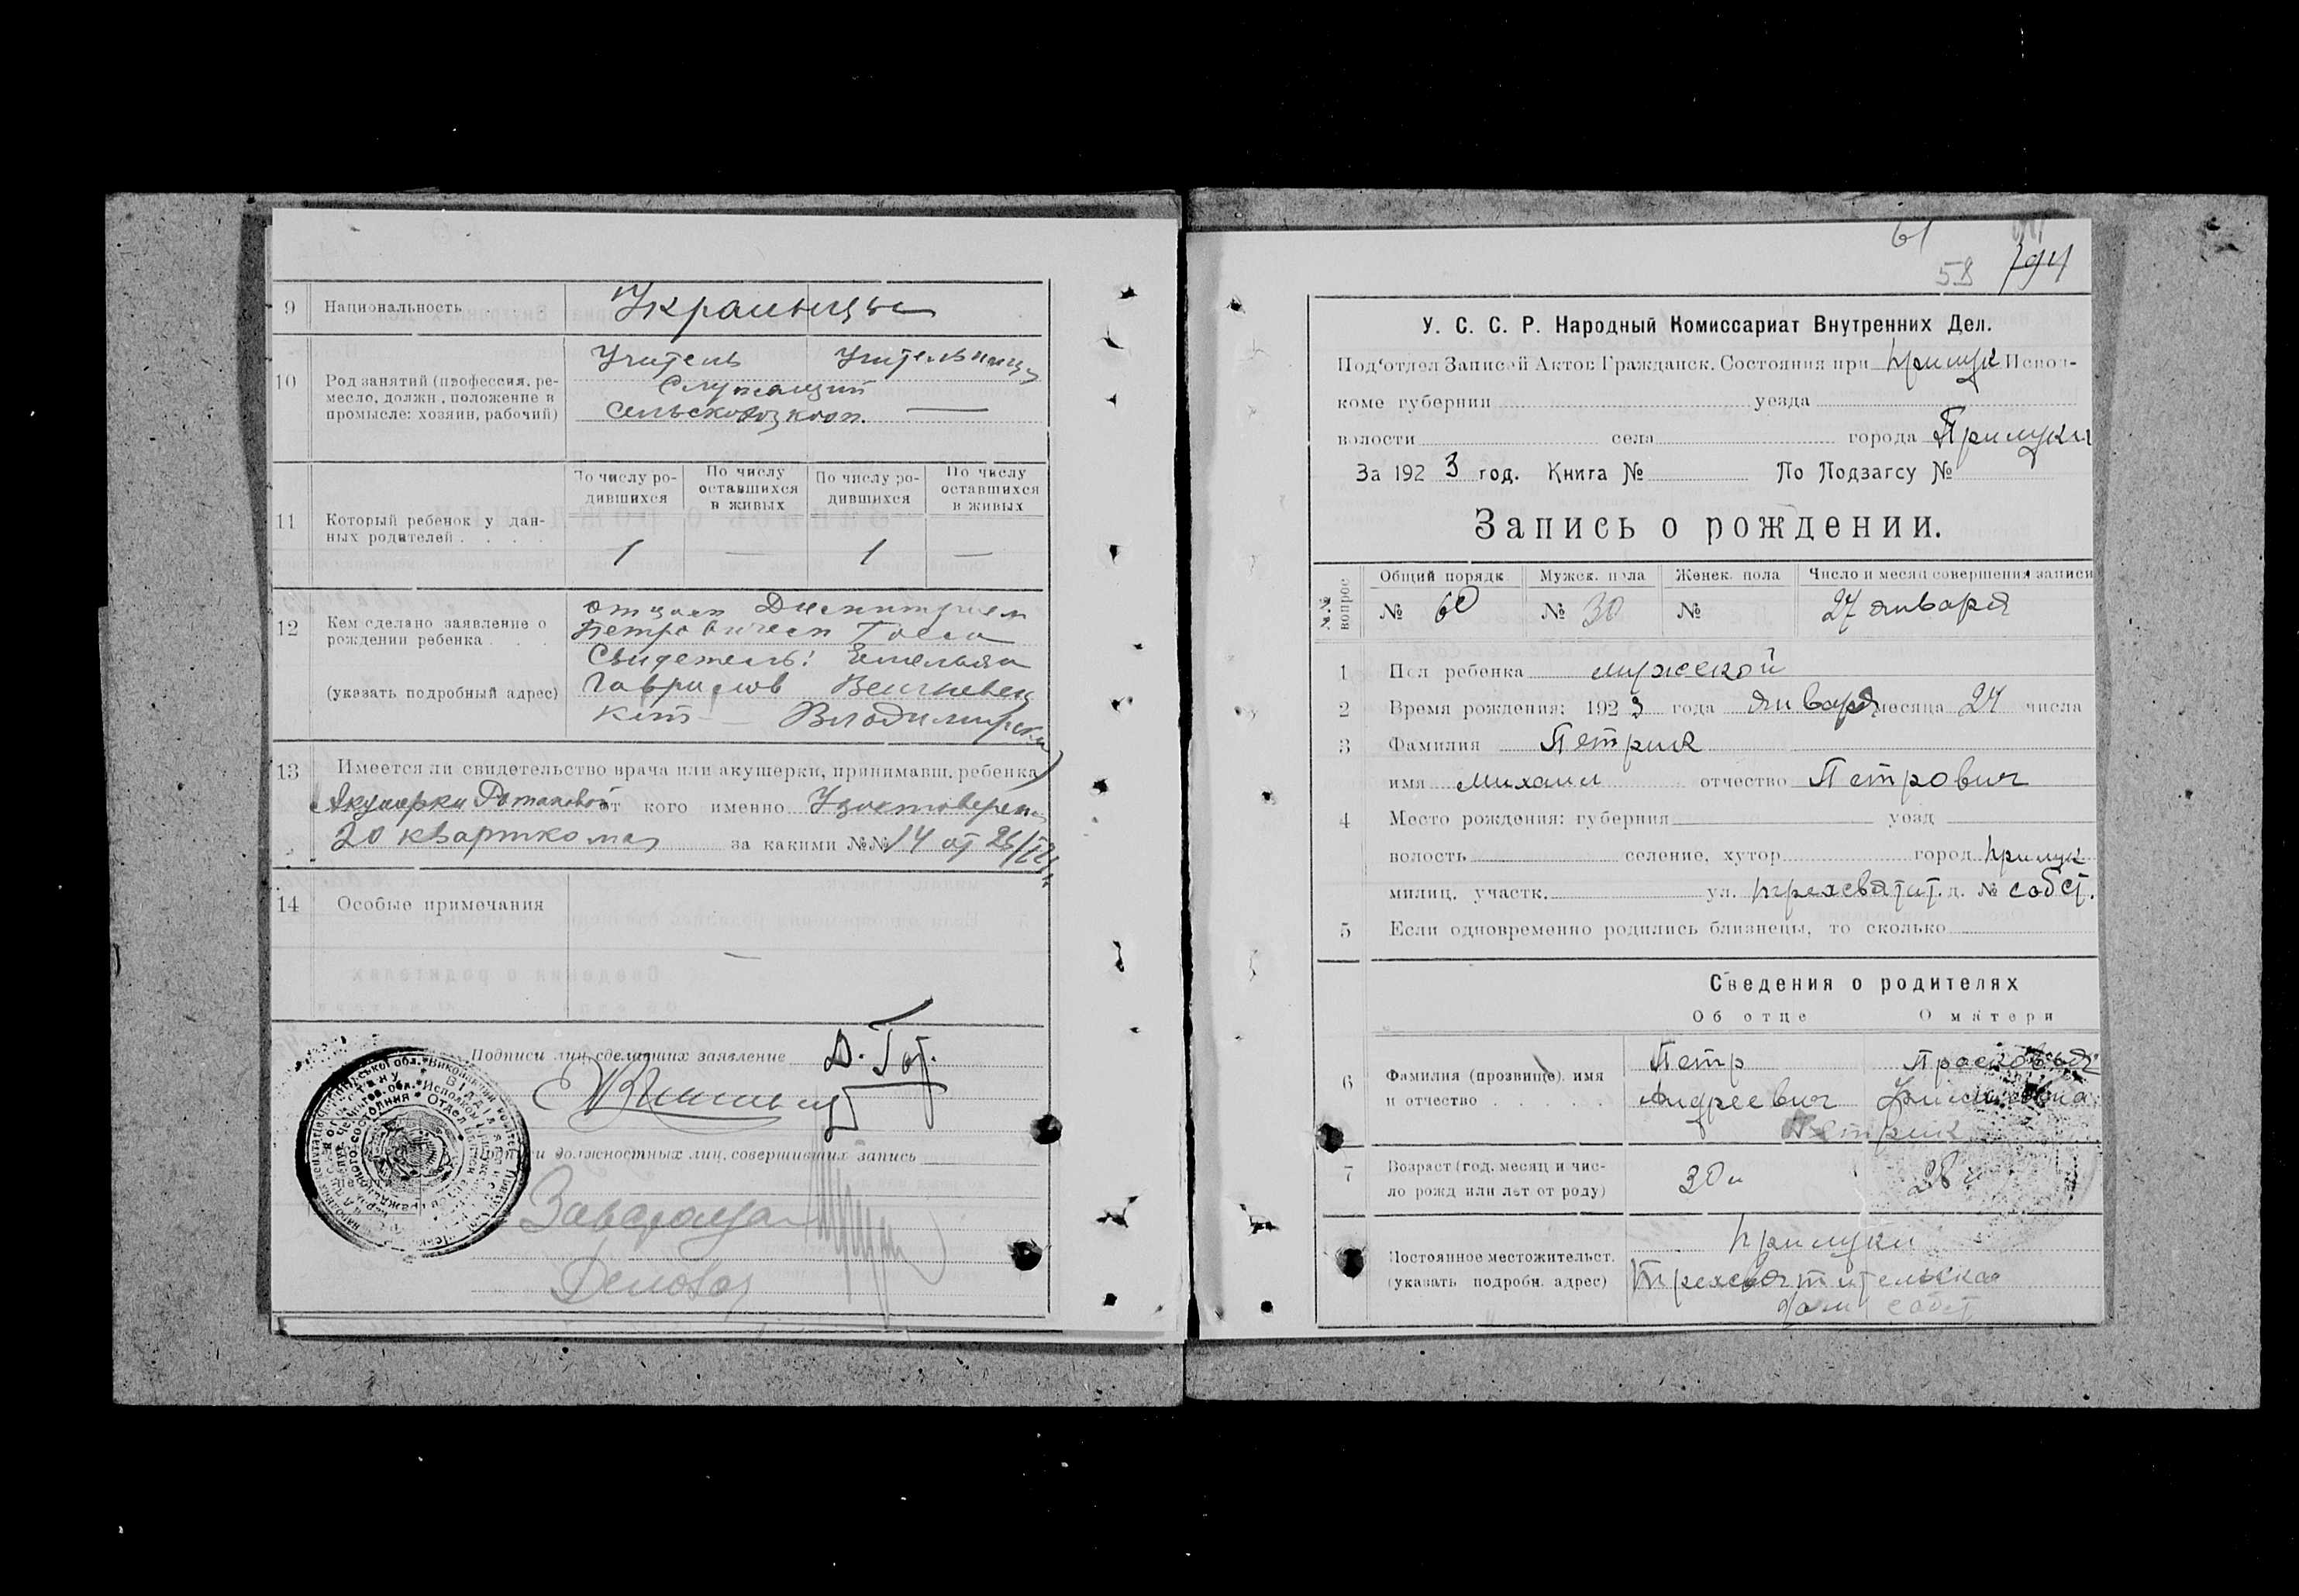 9 Национальность Украинцы
10 Род занятий (профессия, ре-
месло, должн, положение в
промысле: хозяин, рабочий)
Учитель Учительница
Служащий
сельскохоз кооп. —
11 Который ребенок у дан-
ных родителей
По числу ро-
дившихся
По числу
оставшихся
в живых
По числу ро-
дившихся
По числу
оставшихся
в живых
1 — 1 —
12 Кем сделано заявление о
рождении ребенка
(указать подробный адрес)
отцом Дмитрием
Петровичем
Свидетель: Емельян
Гаврилов
Владимирска
13 Имеется ли свидетельство врача или акушерки, принимавш. ребенка
Акушерки от кого именно Удостоверен
20 кварткома за какими №№ 14 от
14 Особые примечания
—
Подписи лиц, сделавших заявление
Подписи должностных лиц, совершивших запись
61
58 794
У. С. С. Р. Народный Комиссариат Внутренних Дел.
Под'отдел Записей Актов Гражданск. Состояния при Прилук Испол-
коме губернии уезда
волости села города Прилуки
За 1923 год. Книга № По Подзагсу №
Запись о рождении.
№№ вопрос
Общий порядк. Мужск. пола Женск. пола Число и месяц совершения записи
№ 60 № 30 № 27 января
1 Пол ребенка мужской
2 Время рождения: 1923 года января месяца 24 числа
3 Фамилия Петрик
имя Михаил отчество Петрович
4 Место рождения: губерния уезд
волость селение, хутор город Прилук
милиц. участк. ул. Трехсвятит. д. № собст.
5 Если одновременно родились близнецы, то сколько
Сведения о родителях
Об отце О матери
6 Фамилия (прозвище), имя
и отчество
Петр Прасковья
Андреевич
Петрик
7 Возраст (год, месяц и чис-
ло рожд или лет от роду)
30 л 28 л
Постоянное местожительст.
(указать подробн. адрес)
Прилуки
Трехсвятительская
дом собст